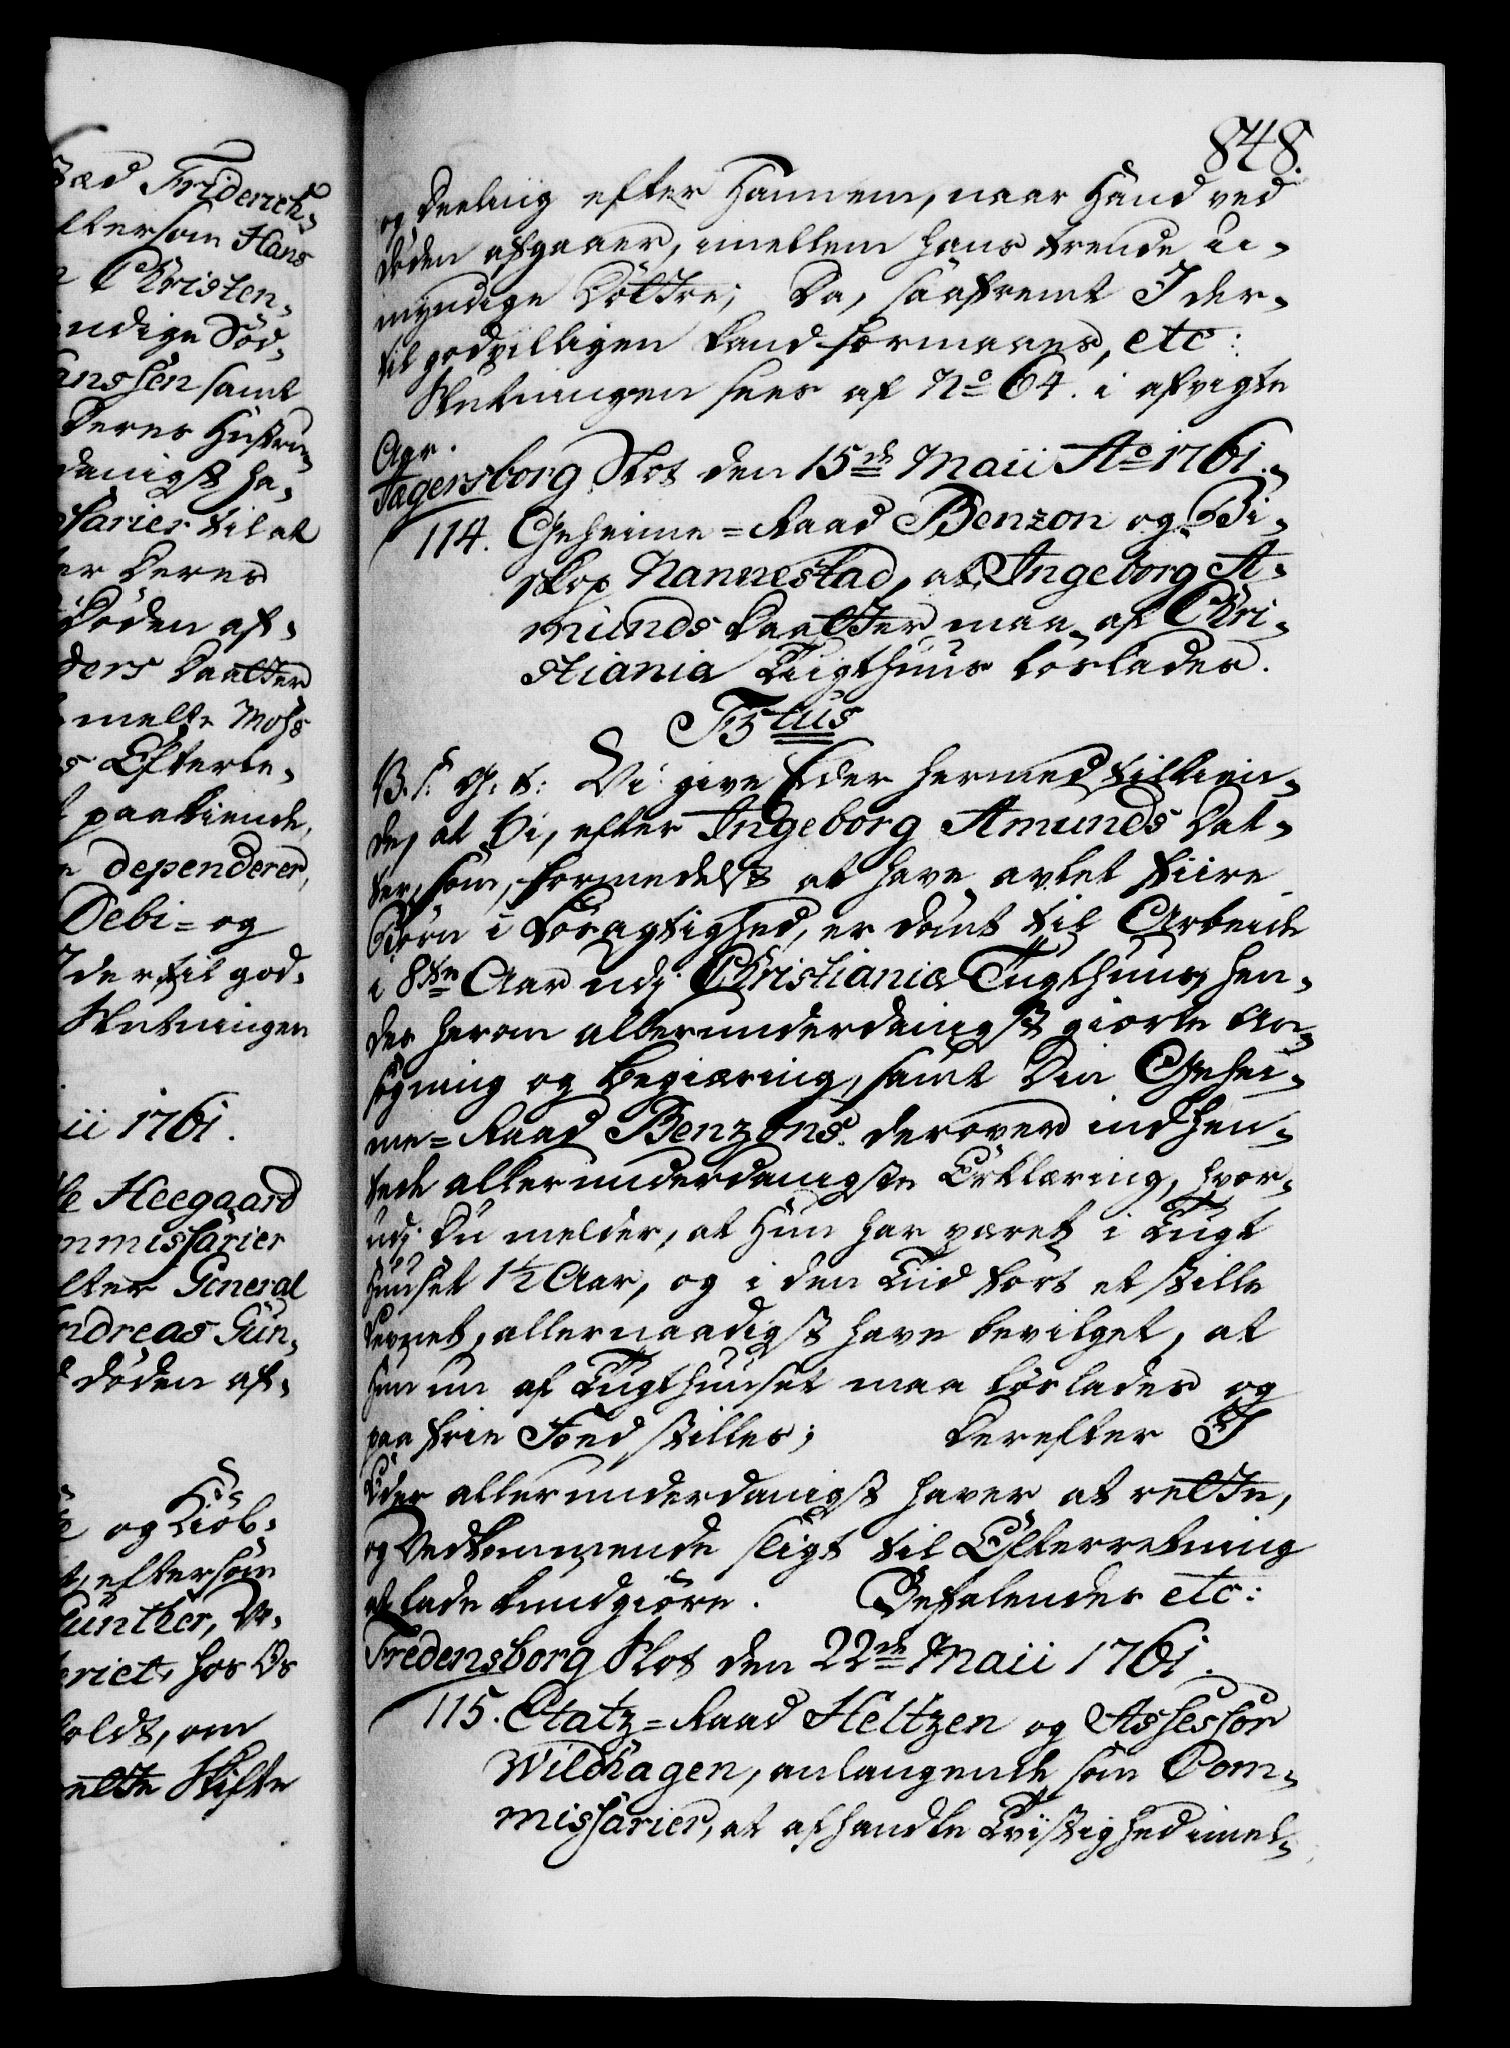 848.
og Deeling efter Hannem, naar Hand ved
Døden afgaaer, imellem hans trende U-
myndige Døttre; Da, saafremt I der-
til godvilligen Eand formaaes, etc:
Slutningen sees af No 64. i afvigte
Aar.
Jægersborg Slot den 15de Maii Ao 1761.
114. Geheime-Raad Benzon og Bi-
skop Nannestad, at Ingeborg A-
munds Daatter maa af Chri-
stiania Tugthuus løslades.
F5tus
B. s. G. t: Vi give Eder hermed tilkien-
de, at Vi, efter Ingeborg Amunds Dat-
ter, som, formedelst at have avlet fiire
Børn i Løsagtighed, er dømt til Arbeide
i 8te Aar udj Christiania Tugthuus, hen-
des herom allerunderdanigst giorte An-
søgning og Begiæring, samt Din Gehei-
me-Raad Benzons derover indhen-
tede allerunderdanigste Erklæring, hvor-
udj Du melder, at Hun har været i Tugt
huuset 1½ Aar, og i den Tiid ført et stille
Levnet, allernaadigst have bevilget, at
hun nu af Tugthuuset maa løslades og
paa frie Foed stilles; Derefter I
Eder allerunderdanigst haver at rette,
og Vedkommende sligt til Efterretning
at lade kundgiøre. Befalendes etc:
Fredensborg Slot den 22de Maii 1761.
115. Etatz-Raad Heltzen og Assessor
Wildhagen, anlangende som Com-
missarier, at afhandle Tvistighed imel-
Friderich-
eftersom Hans
Christen-
anssen samt
Deres Hustru
danigst ha-
sarier til at
Deres
Døden af-
ders Daatter
melte Moss
Efterle-
paakiende,
dependerer,
Debi- og
I dertil god-
Slutningen
ii 1761.
Heegaard
mmissarier
efter General
ndreas Gün-
døden af-
og Kiøb-
eftersom
Günther,
eriet hos Os
oldt, om
rette Skifte